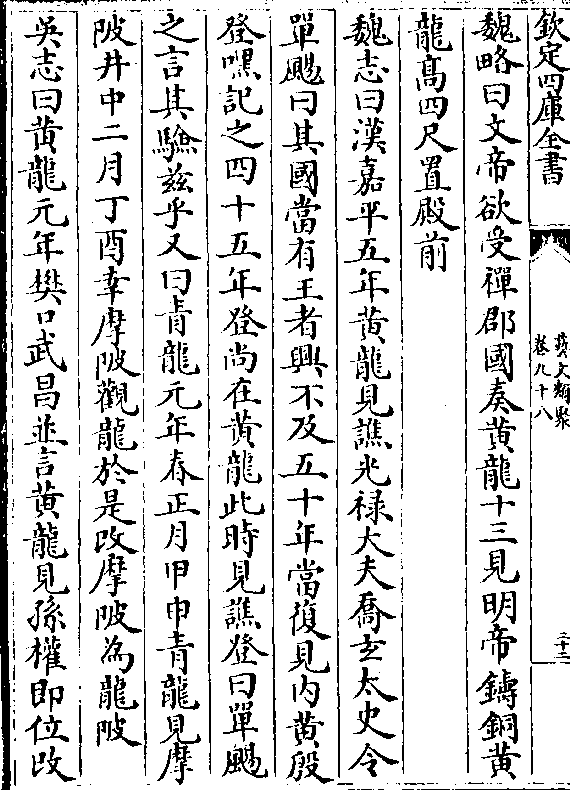 欽定四庫全書
藝文類聚
卷九十八
二十二
魏略曰文帝欲受禪郡國奏黃龍十三見明帝鑄銅黃
龍高四尺置殿前
魏志曰漢嘉平五年黃龍見譙光禄大夫喬玄太史令
單颺曰其國當有王者興不及五十年當復見内黃殷
登嘿記之四十五年登尚在黃龍此時見譙登曰單颺
之言其驗兹乎又曰青龍元年春正月甲申青龍見摩
陂井中二月丁酉幸摩陂觀龍於是改摩陂為龍陂
吳志曰黃龍元年樊口武昌並言黃龍見孫權即位改